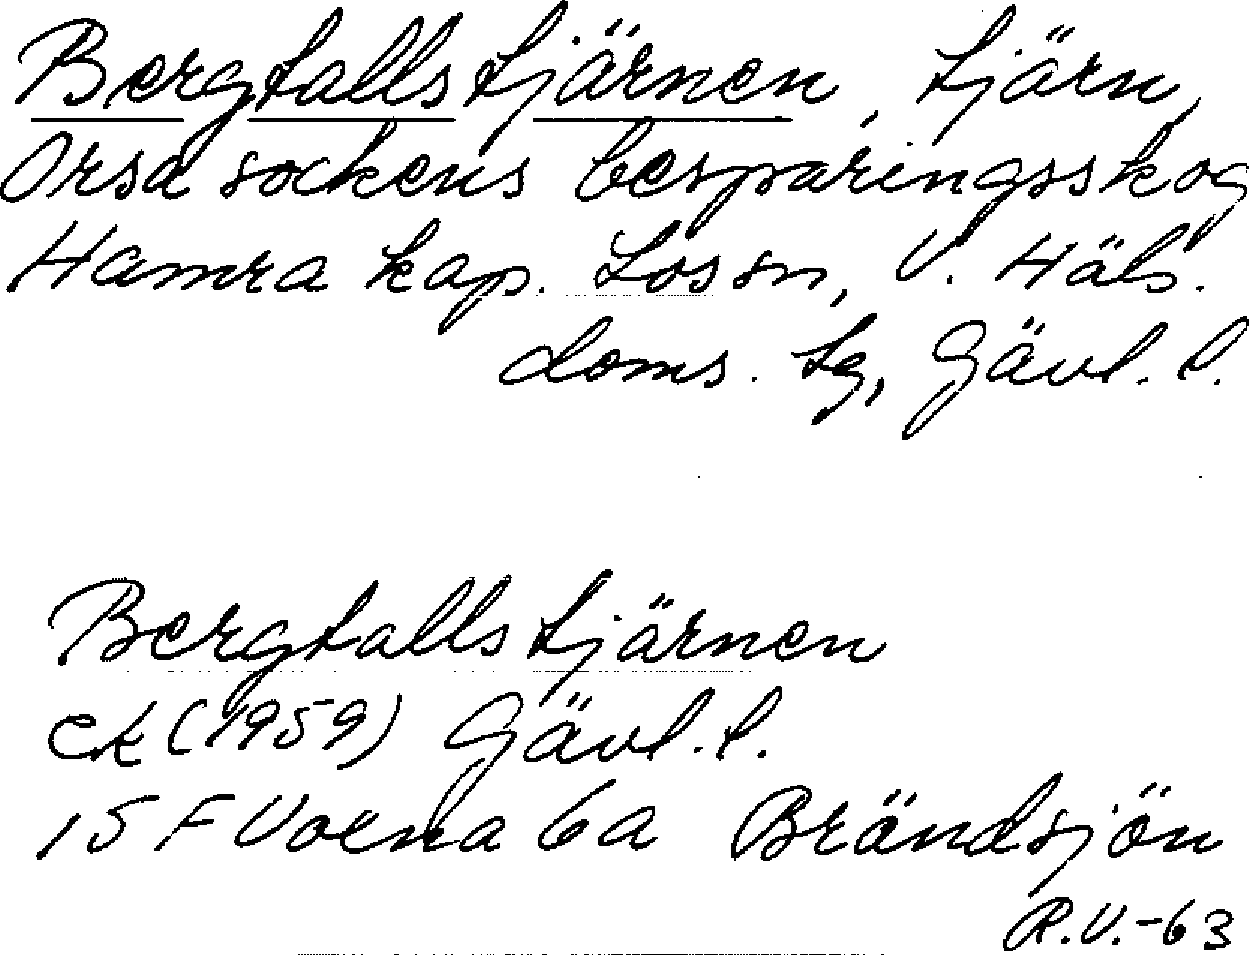 Bergtallstjärnen, tjärn,
Orsa sockens besparingsskog
Hamra kap. Lossn, V. Häls.
doms. tg, Gävl. l.
Bergtallstjärnen
ek (1959) Gävl. l.
15 F Voxna 6a Brändsjön
R.V.-63